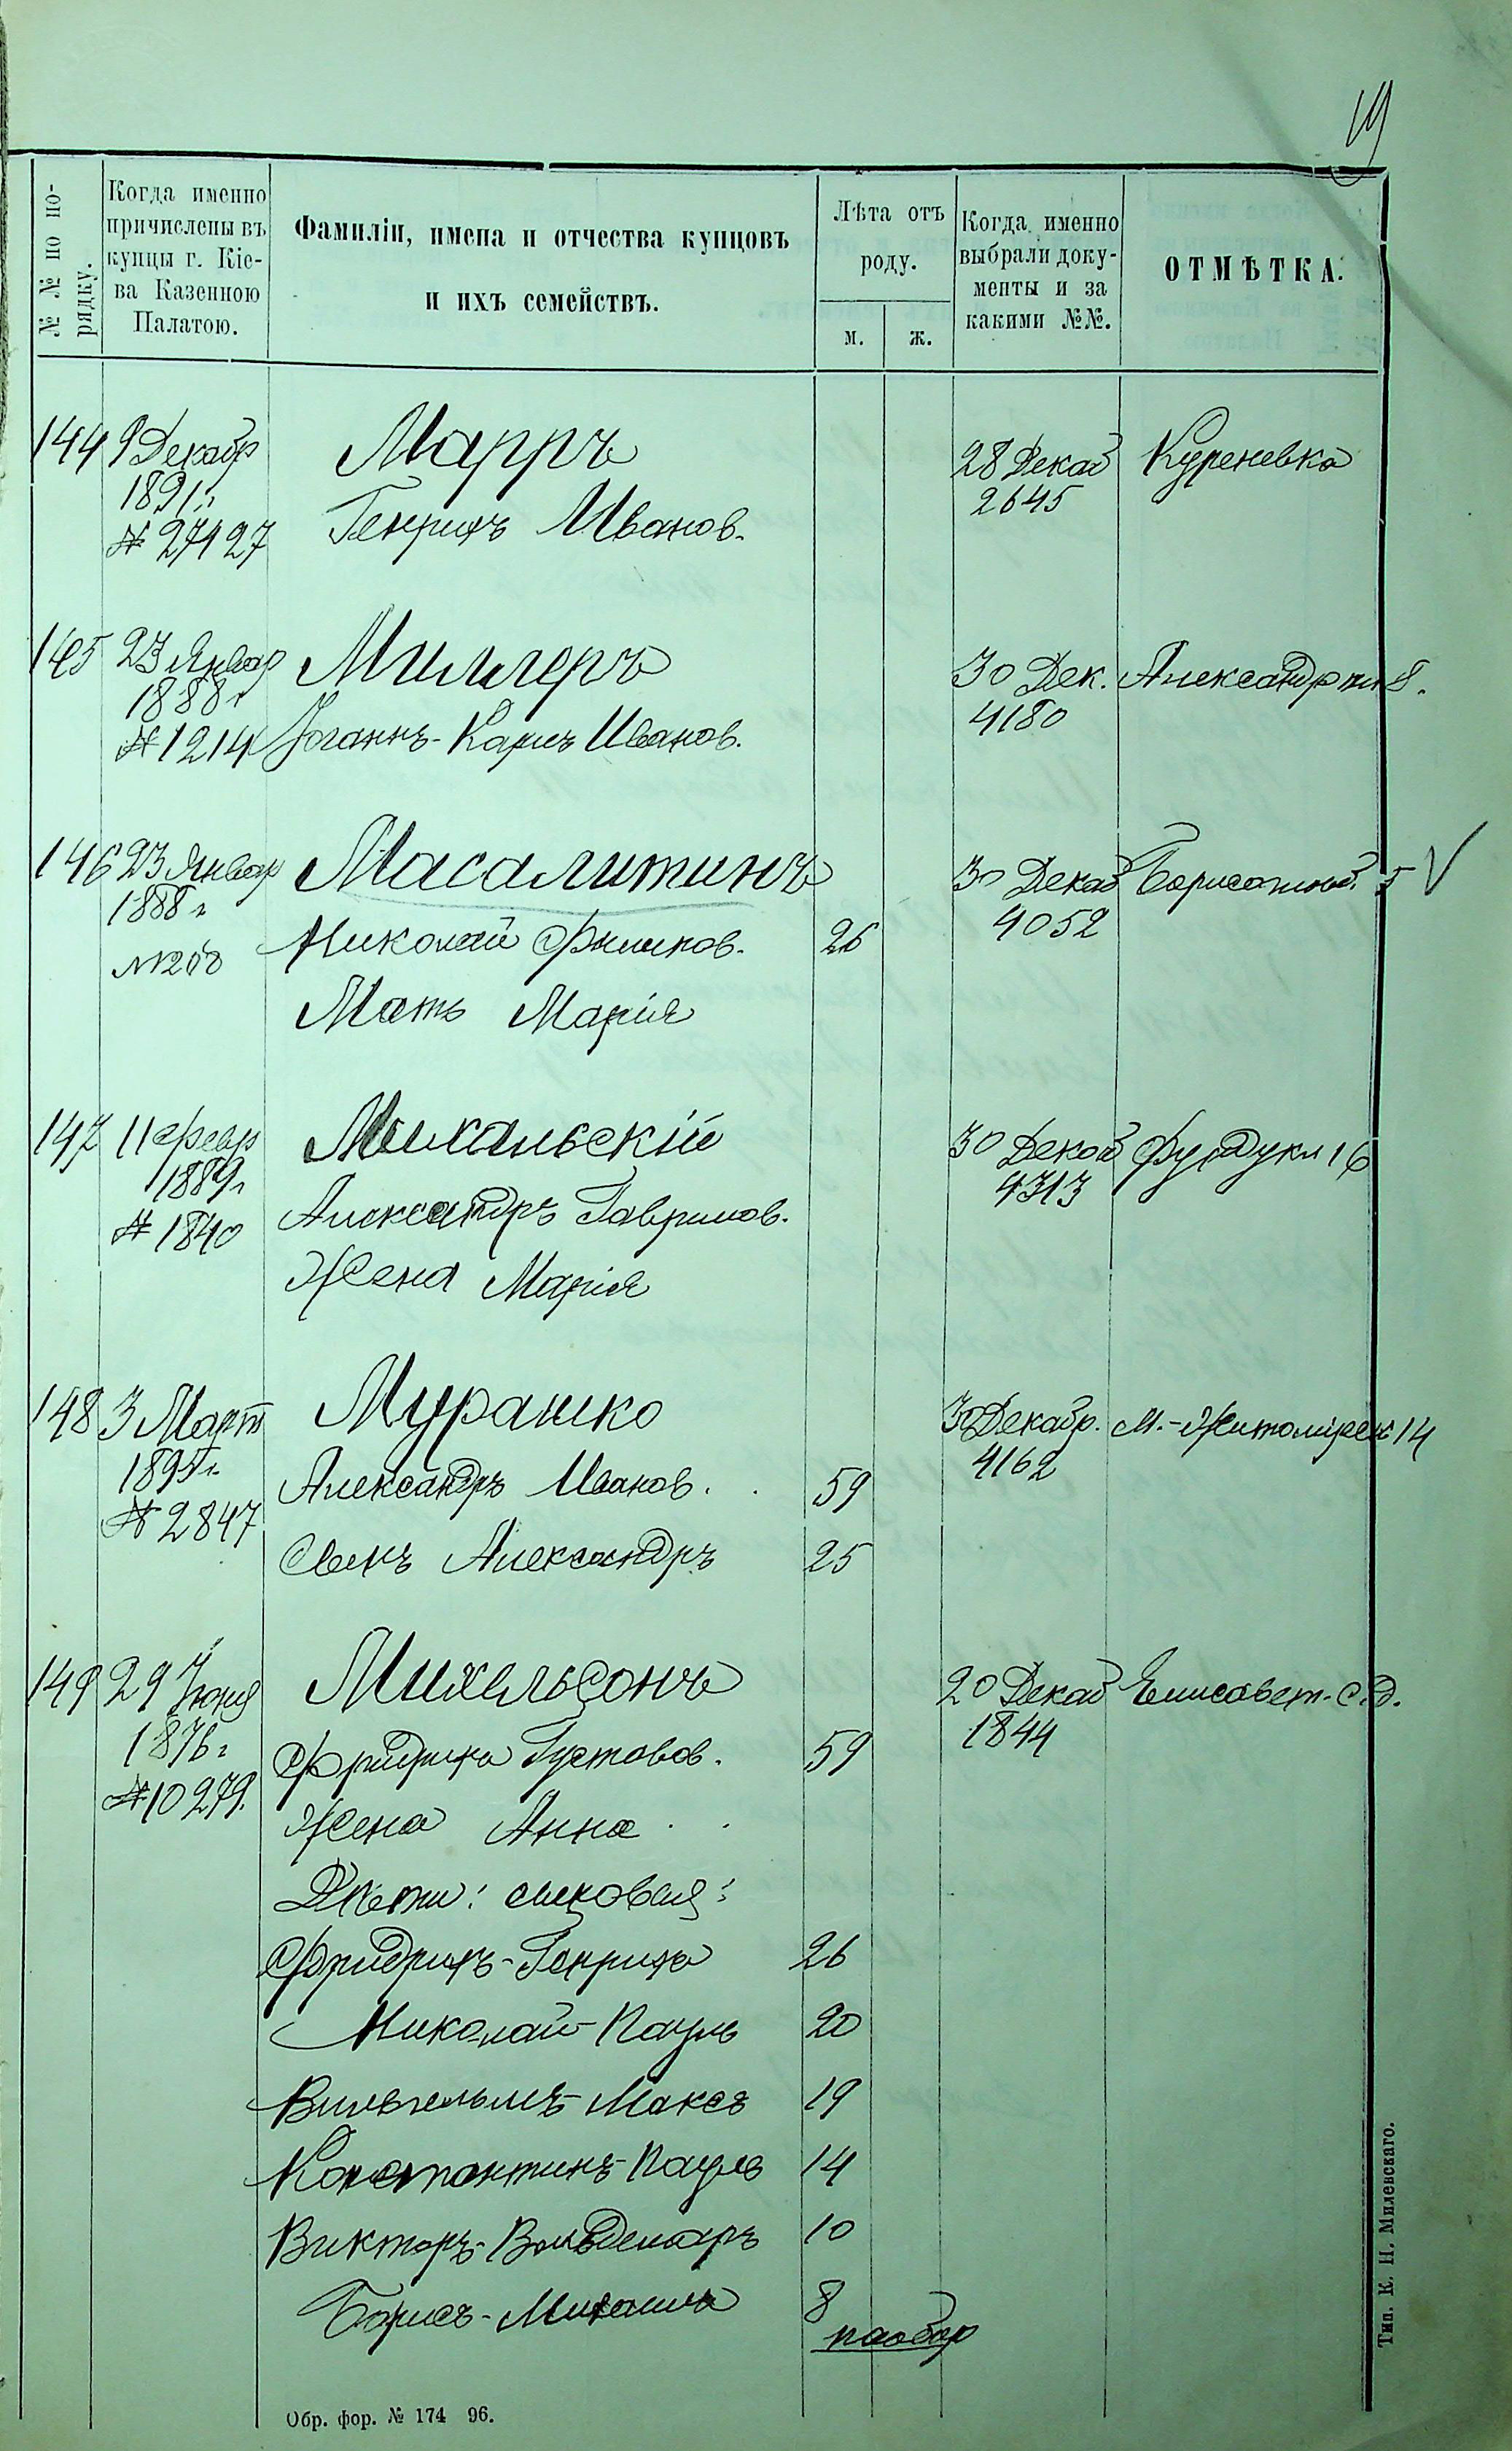 № № по по-
рядку.
Когда именно
причислены въ
купцы г. Кіе-
ва Казенною
Палатою.
Фамиліи, имена и отчества купцовъ
и ихъ семействъ.
Лѣта отъ
роду.
м.
ж.
Когда именно
выбрали доку-
менты и за
какими №№.
ОТМѢТКА.
144 9 Декабр Марръ 28 Декаб Куреневка
1891 г. 2645
№ 27127 Генрихъ Иванов.
145 23 Январ Миллеръ 30 Дек. Александр пл 8.
1888 г 4180
№ 1214 Іоганнъ-Карлъ Иванов.
146 23 Январ Масалитинъ 30 Декаб 5
1888 г 4052
Николай Филипов. 26
Мать Марія
147 11 Февр Михальскій 30 Декаб Фундукл 16
1889 г 4313
№ 1840 Александръ Гаврилов.
Жена Марія
148 3 Март Мурашко 30 Декабр. М.-Житомірск 14
4162
Александръ Иванов. 59
№ 2847
Сынъ Александръ 25
149 29 Іюня Михельсонъ 20 Декаб Елисавет. с. д.
1876 г 1844
Фридрихъ Густавов. 59
№ 10279.
Жена Анна
Дѣти: сыновья:
Фридрихъ-Генрихъ 26
Николай-Пауль 20
Вильгельмъ-Максъ 19
Константинъ-Пауль 14
Викторъ-Вольдемаръ 10
Борисъ-Михаилъ 8
на обор
Обр. фор. № 174 96.
Тип. К. Н. Милевскаго.